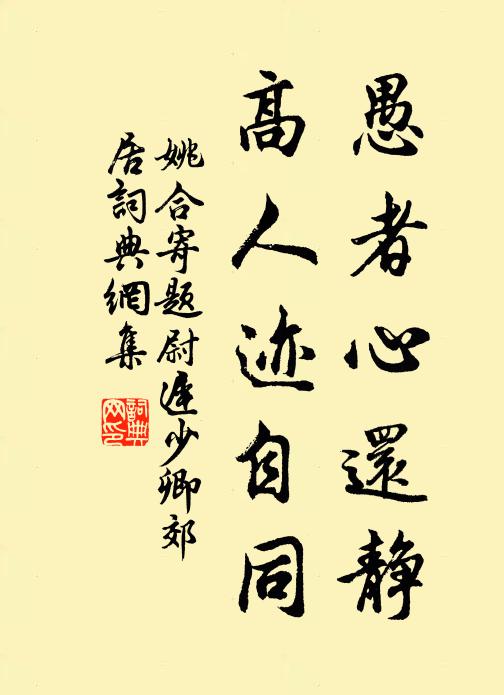 愚者心還靜
高人迹自同
姚合寄題尉遲少卿郊
居詞典網集
詞典
网印